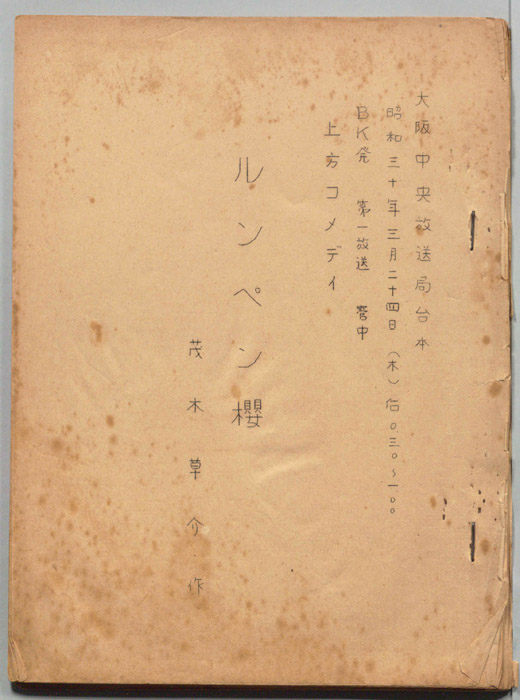 大阪中央放送局台本
昭和三十年三月二十四日（木）后０三〇～一〇〇
BK発 第一放送 管中
上方コメデイ
ルンペン櫻
茂木草介作